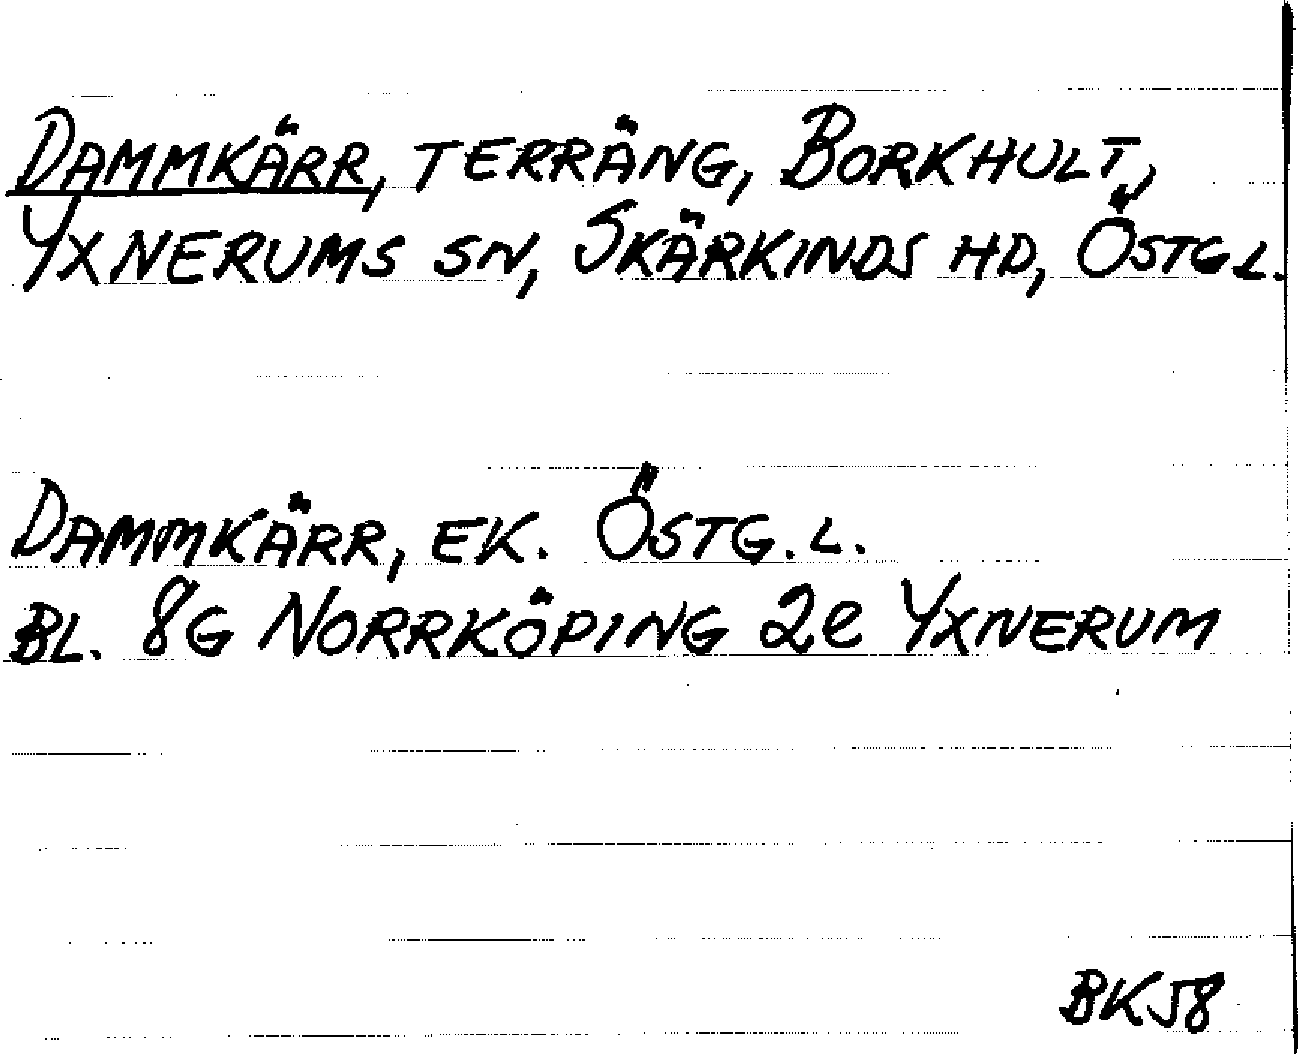 DAMMKÄRR, TERRÄNG, BORKHULT,
YXNERUMS SN, SKÄRKINDS HD, ÖSTG L.
DAMMKÄRR, EK. ÖSTG. L.
BL. 8G NORRKÖPING 2e YXNERUM
BK58